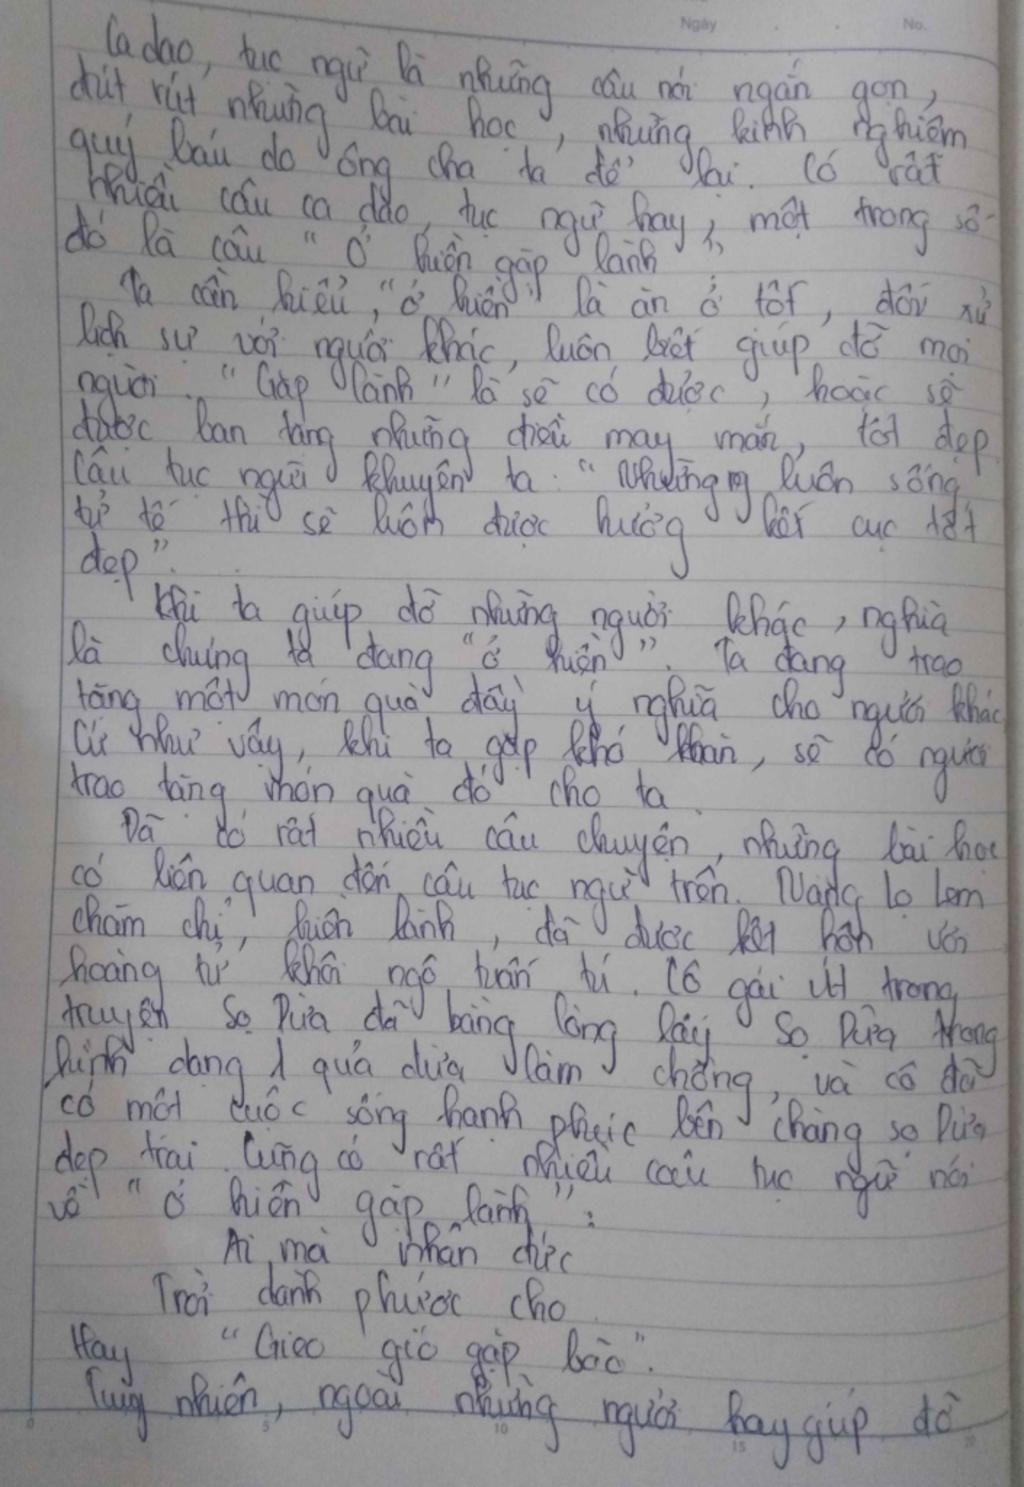 Ngày No.
Ca dao, tục ngữ là những câu nói ngắn gọn,
đút rút những bài học, những kinh nghiệm
quý báu do ông cha ta để lại. Có rất
nhiều câu ca dao, tục ngữ hay, một trong số
đó là câu "Ở hiền gặp lành"
Ta cần hiểu, "ở hiền" là ăn ở tốt, đối xử
lịch sự với người khác, luôn biết giúp đỡ mọi
người. "Gặp lành" là sẽ có được, hoặc sẽ
được ban tặng những điều may mắn, tốt đẹp.
Câu tục ngữ khuyên ta: "Những ng luôn sống
tử tế thì sẽ luôn được hưởg kết cục tốt
đẹp".
Khi ta giúp đỡ những người khác, nghĩa
là chúng ta đang "ở hiền". Ta đang trao
tặng một món quà đầy ý nghĩa cho người khác
Cứ như vậy, khi ta gặp khó khăn, sẽ có người
trao tặng món quà đó cho ta.
Đã có rất nhiều câu chuyện, những bài học
có liên quan đến câu tục ngữ trên. Nàng lọ lem
chăm chỉ, hiền lành, đã được kết hôn với
hoàng tử khôi ngô tuấn tú. Cô gái Út trong
truyện Sọ Dừa đã bằng lòng lấy Sọ Dừa trong
hình dạng 1 quả dừa làm chồng, và cô đã
có một cuộc sống hạnh phúc bên chàng sọ Dừa
đẹp trai. Cũng có rất nhiều câu tục ngữ nói
về "ở hiền gặp lành":
Ai mà nhân đức
Trời dành phước cho.
Hay "Gieo gió gặp bão".
Tuy nhiên, ngoài những người hay giúp đỡ
0 5 10 15 20